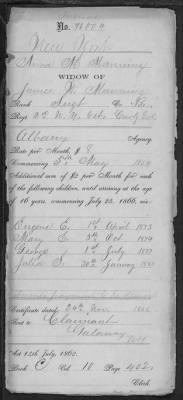 No. 96874
New York
Anna M. Manning
WIDOW OF
James W. Manning
Rank Sergt Co.
Regt
Albany Agency.
Rate per Month, $ 8
Commencing 5th May 1864
Additional sum of $2 per Month for each
of the following children, until arriving at the age
of 16 years, commencing July 25, 1866, viz:
Eugene E. 1st April 1873
Mary E. 5th Oct 1874
George 1st July 1877
Julia S. 30th January
Certificate dated 24th Nov. 1866
Sent to Claimant
Galway
Act 14th July, 1862.
Book C Vol 10 Page 402
Clerk